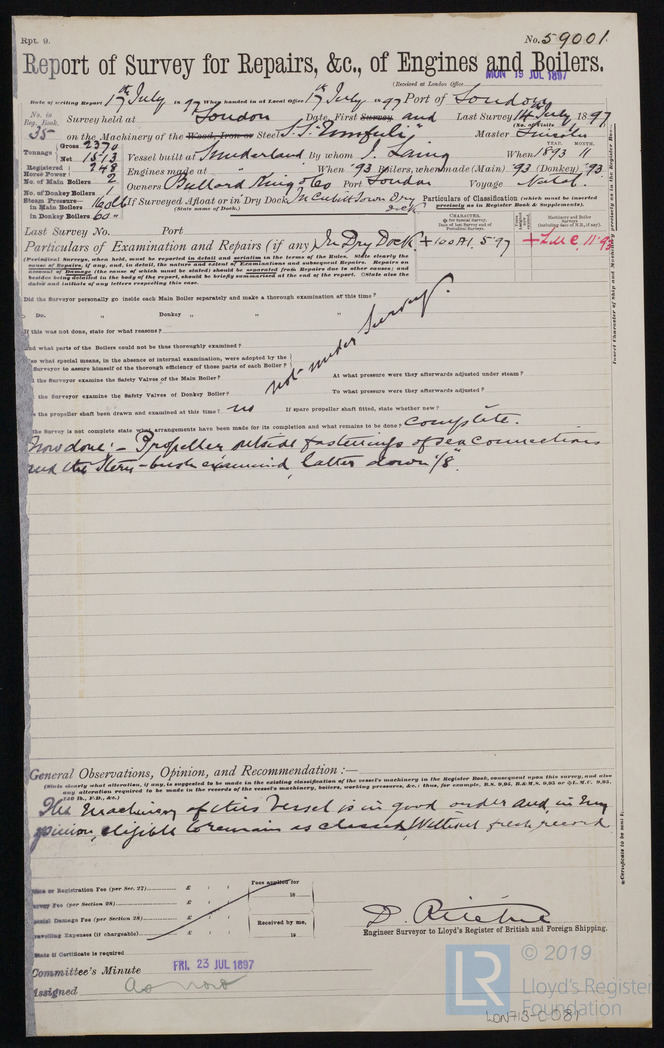 Rpt. 9.
No. 59001.
Report of Survey for Repairs, &c., of Engines and Boilers.
(Received at London Office MON 19 JUL 1897
Date of writing Report 17th July 1897 When handed in at Local Office 17th July 1897 Port of London
No. in Reg. Book. 35 Survey held at London Date, First Survey and Last Survey 14th July, 1897
(No. of Visits
on the Machinery of the Wood, Iron or Steel S.S. "Umfuli" Master Lincoln
Tonnage Gross 2370 Net 1513
Vessel built at Sunderland By whom J. Laing When 1893 11
YEAR. MONTH.
Registered Horse Power 248 Engines made at " When '93 Boilers, when made (Main) '93 (Donkey) '93
No. of Main Boilers 2 Owners Bullard King & Co Port London Voyage Natal.
No. of Donkey Boilers 1
Steam Pressure— in Main Boilers 160 lb If Surveyed Afloat or in Dry Dock In Cubitt Town Dry Dock
(State name of Dock.)
in Donkey Boilers 60 "
Particulars of Classification (which must be inserted precisely as in Register Book & Supplements).
Last Survey No. Port
Particulars of Examination and Repairs (if any) In Dry Dock. +100A1. 5.97 +LMC. 11.93
(Periodical Surveys, when held, must be reported in detail and seriatim in the terms of the Rules. State clearly the
cause of Repairs, if any, and, in detail, the nature and extent of Examinations and subsequent Repairs. Repairs on
account of Damage (the cause of which must be stated) should be separated from Repairs due to other causes; and
besides being detailed in the body of the report, should be briefly summarised at the end of the report. State also the
dates and initials of any letters respecting this case.
Did the Surveyor personally go inside each Main Boiler separately and make a thorough examination at this time?
Do. " Donkey " " "
If this was not done, state for what reasons?
And what parts of the Boilers could not be thus thoroughly examined?
so what special means, in the absence of internal examination, were adopted by the
Surveyor to assure himself of the thorough efficiency of those parts of each Boiler?
not under Survey.
the Surveyor examine the Safety Valves of the Main Boiler? At what pressure were they afterwards adjusted under steam?
the Surveyor examine the Safety Valves of Donkey Boiler? To what pressure were they afterwards adjusted?
Has the propeller shaft been drawn and examined at this time? no If spare propeller shaft fitted, state whether new?
the Survey is not complete state what arrangements have been made for its completion and what remains to be done? Complete.
Now done:- Propeller outside fastenings of sea connections
and the Stern-bush examined, latter down 1/8".
General Observations, Opinion, and Recommendation :—
(State clearly what alteration, if any, is suggested to be made in the existing classification of the vessel's machinery in the Register Book, consequent upon this survey, and also
any alteration required to be made in the records of the vessel's machinery, boilers, working pressures, &c.: thus, for example, B.S. 9,95, B.&M.S. 9,95 or L.M.C. 9,95,
140 lb., F.D., &c.)
The Machinery of this Vessel is in good order and, in my
opinion, eligible to remain as classed, without fresh record
or Registration Fee (per Sec. 27) £ : : Fees applied for
Survey Fee (per Section 28) £ : : 18
Special Damage Fee (per Section 28) £ : : Received by me,
Travelling Expenses (if chargeable) £ : : 18
D. Ritchie
Engineer Surveyor to Lloyd's Register of British and Foreign Shipping.
State if Certificate is required
Committee's Minute FRI. 23 JUL 1897
Assigned as now
LR
© 2019
Lloyd's Register
Foundation
LON713-C-081